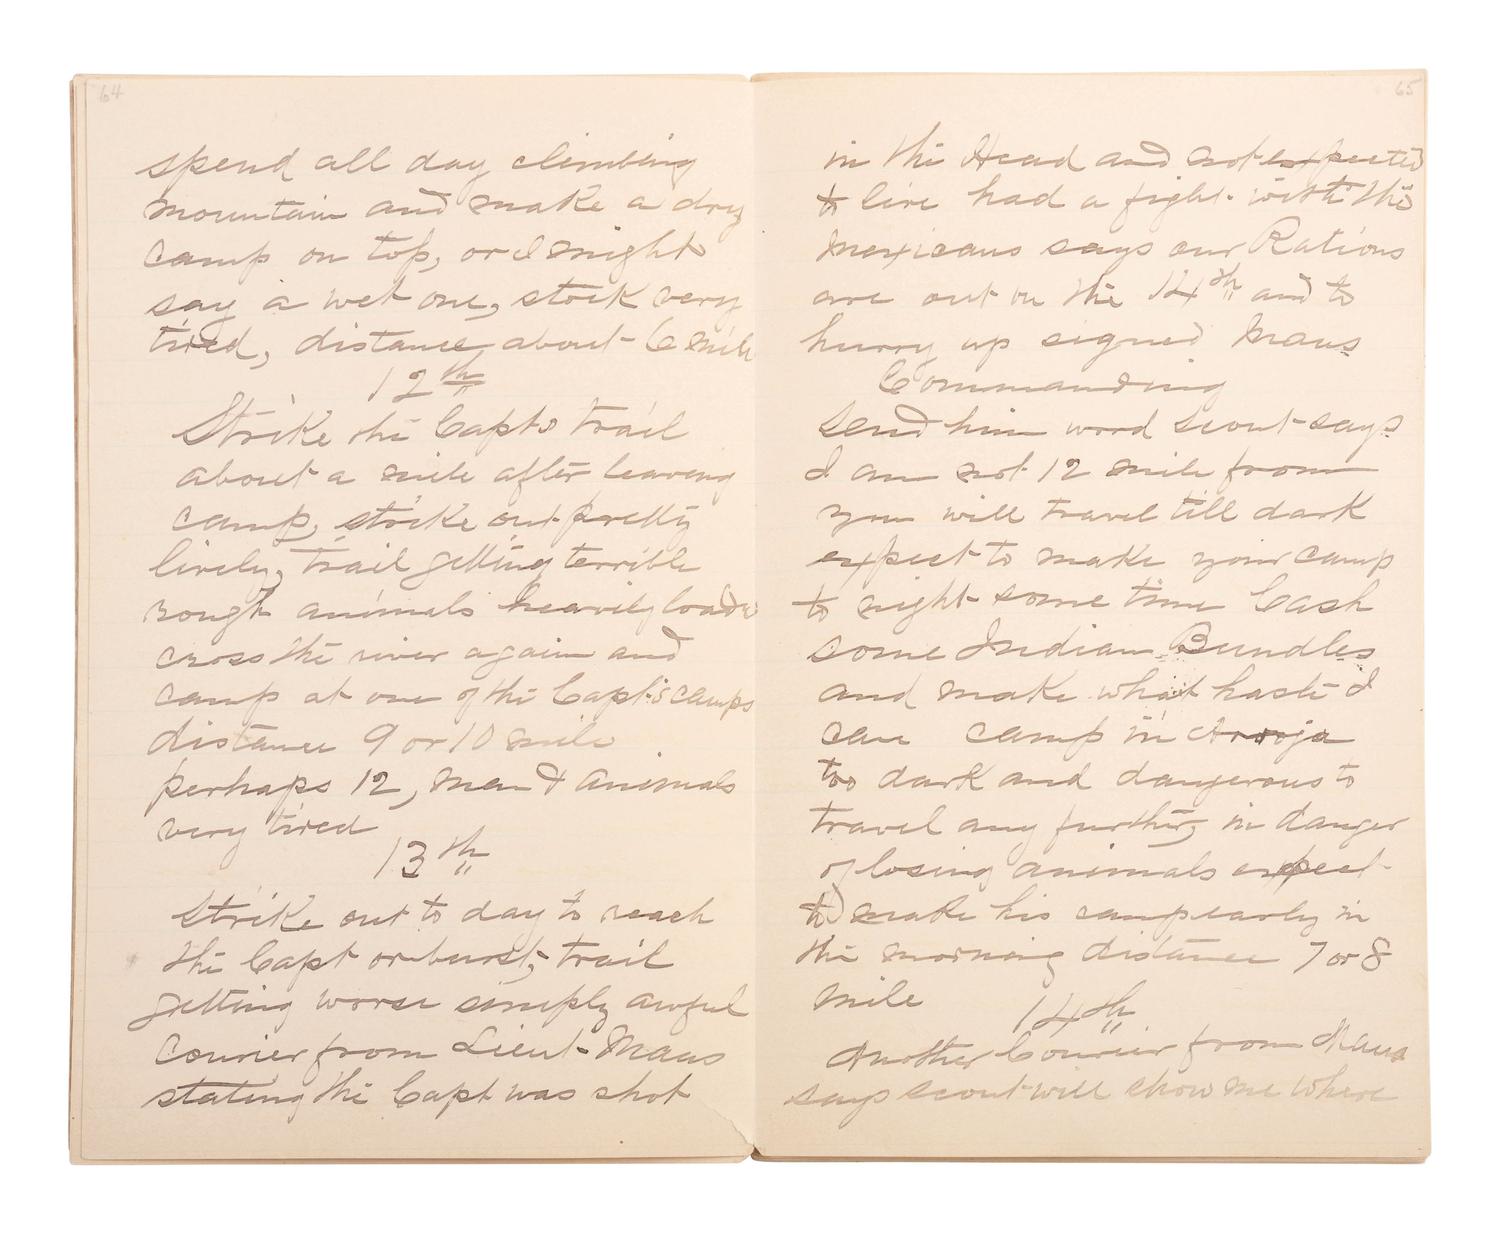 64
spend all day climbing
mountain and make a dry
camp on top, or I might
say a wet one, stock very
tired, distance, about 6 mile
12th
Strike the Capts trail
about a mile after leaving
camp, strike out pretty
lively, trail getting terrible
rough animals heavily loaded
cross the river again and
camp at one of the Capt's camps
distance 9 or 10 mile
perhaps 12, men & animals
very tired
13th
Strike out to day to reach
the Capt or burst, trail
getting worse simply awful
Courier from Lieut Maus
stating the Capt was shot
65
in the Head and not expected
to live had a fight with the
Mexicans says our Rations
are out on the 14th and to
hurry up signed Maus
Commanding
Send him word scout says
I am not 12 mile from
you will travel till dark
expect to make your camp
to night some time Cash
some Indian Bundles
and make what haste I
can camp in Arroja
too dark and dangerous to
travel any further, in danger
of losing animals expect
to make his camp early in
the morning distance 7 or 8
mile
14th
Another Courier from Maus
says scout will show me where